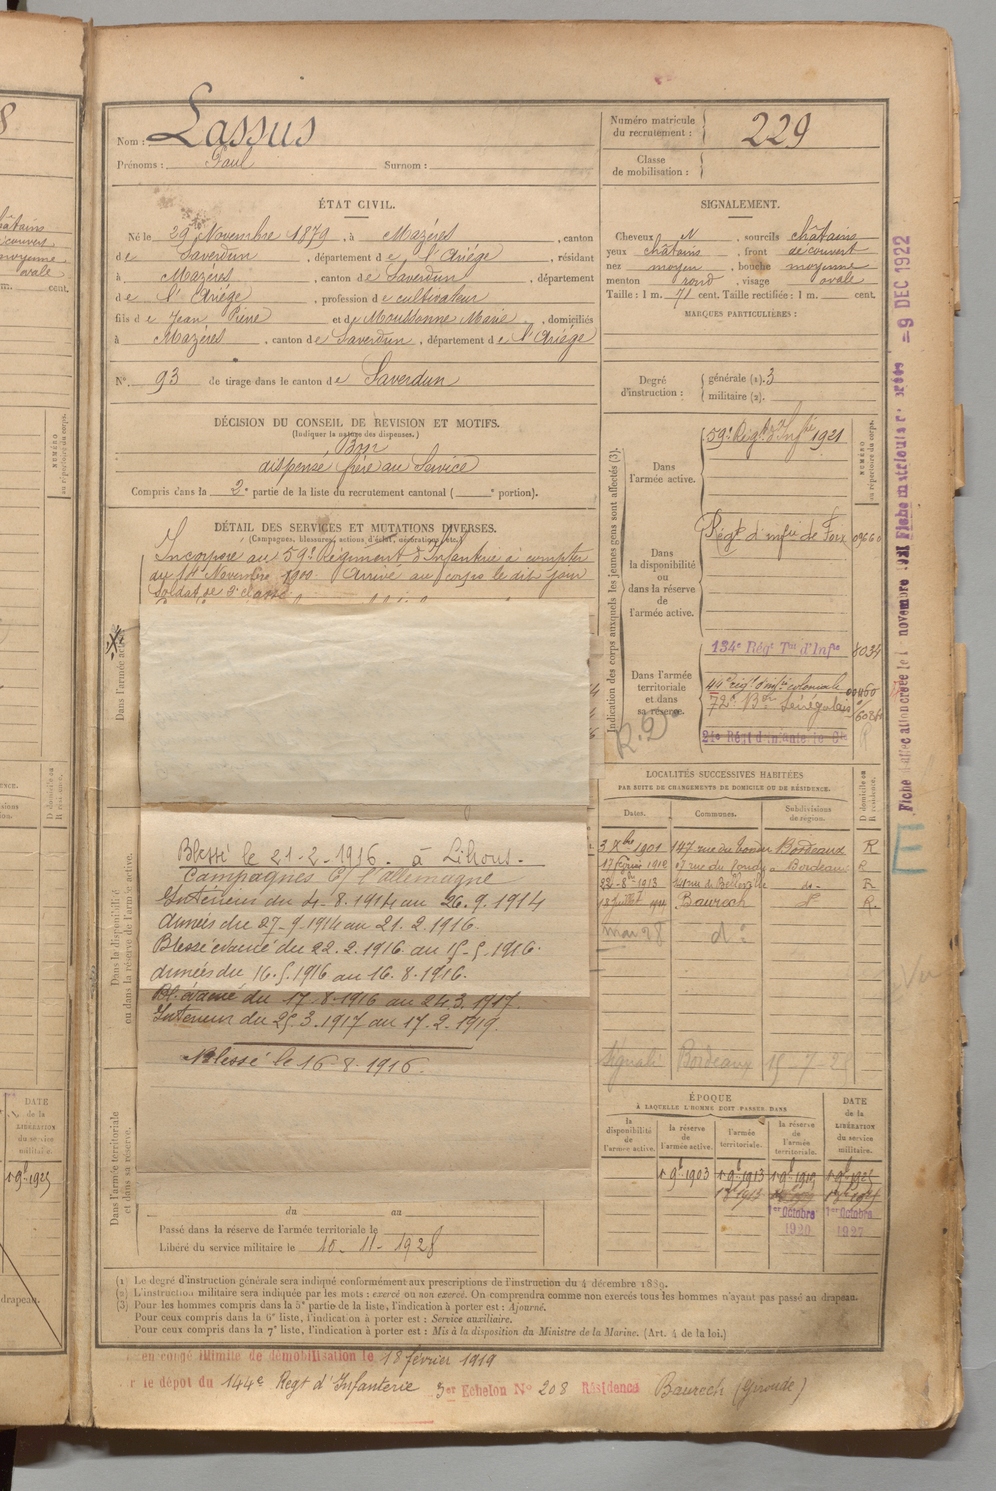 Nom : Lassus
Prénoms : Paul Surnom :
Numéro matricule du recrutement : 229
Classe de mobilisation :
ÉTAT CIVIL.
Né le 29 Novembre 1879, à Mazères, canton
de Saverdun, département de l'Ariège, résidant
à Mazères, canton de Saverdun, département
de l'Ariège, profession de cultivateur
fils de Jean Pierre et de Moussonne Marie, domiciliés
à Mazères, canton de Saverdun, département de l'Ariège
N° 93 de tirage dans le canton de Saverdun
SIGNALEMENT.
Cheveux N, sourcils châtains
yeux châtains, front découvert
nez moyen, bouche moyenne
menton rond, visage ovale
Taille : 1 m. 71 cent. Taille rectifiée : 1 m. cent.
MARQUES PARTICULIÈRES :
Degré d'instruction : générale (1). 3
militaire (2).
DÉCISION DU CONSEIL DE REVISION ET MOTIFS.
(Indiquer la nature des dispenses.)
Bon
dispensé frère au Service
Compris dans la 2e partie de la liste du recrutement cantonal ( e portion).
DÉTAIL DES SERVICES ET MUTATIONS DIVERSES.
(Campagnes, blessures, actions d'éclat, décorations, etc.)
Incorporé au 59e Régiment d'Infanterie à compter
du 14 Novembre 1900. Arrivé au corps le dit jour
soldat de 2e classe
Blessé le 21-2-1916. à Lihons.
Campagnes Ct l'allemagne
Intérieur du 4-8-1914 au 26.9.1914
Armées du 27.9.1914 au 21.2.1916.
Blessé évacué du 22.2.1916 au 15-5-1916.
Armées du 16.5.1916 au 16.8.1916.
Bl. évacué du 17-8-1916 au 24.3.1917.
Intérieur du 25.3.1917 au 17.2.1919.
Blessé le 16-8-1916.
du au
Passé dans la réserve de l'armée territoriale le
Libéré du service militaire le 10-11-1928
Dans l'armée active.
Dans la disponibilité ou dans la réserve de l'armée active.
Dans l'armée territoriale et dans sa réserve.
Indication des corps auxquels les jeunes gens sont affectés (3).
NUMÉRO au répertoire du corps.
Dans l'armée active.
59e Regt d'Infie 1921
Dans la disponibilité ou dans la réserve de l'armée active.
Régt d'infie de Foix
Dans l'armée territoriale et dans sa réserve.
134e Rég Tal d'Infie 8034
44e régt d'infie coloniale
72e Bon Sénégalais
R.D.
LOCALITÉS SUCCESSIVES HABITÉES
PAR SUITE DE CHANGEMENTS DE DOMICILE OU DE RÉSIDENCE.
Dates. Communes. Subdivisions de région. D domicile ou R résidence.
3 Xbre 1901 147 rue du Bordeaux R
17 Février 1912 rue du Bordeaux R
22-8-1913 rue de do- R
18 Juillet Baurech d° R.
mai 28 d°
Signalé Bordeaux 15-7-28
ÉPOQUE
À LAQUELLE L'HOMME DOIT PASSER DANS
la disponibilité de l'armée active.
la réserve de l'armée active.
l'armée territoriale.
la réserve de l'armée territoriale.
DATE de la LIBÉRATION du service militaire.
1er 9bre 1903 1er 9bre 1913 1er 9bre 1919 1er 9bre 1925
1er Octobre 1920 1er Octobre 1927
Fiche matricule 9 DEC 1922
(1) Le degré d'instruction générale sera indiqué conformément aux prescriptions de l'instruction du 4 décembre 1889.
(2) L'instruction militaire sera indiquée par les mots : exercé ou non exercé. On comprendra comme non exercés tous les hommes n'ayant pas passé au drapeau.
(3) Pour les hommes compris dans la 5e partie de la liste, l'indication à porter est : Ajourné.
Pour ceux compris dans la 6e liste, l'indication à porter est : Service auxiliaire.
Pour ceux compris dans la 7e liste, l'indication à porter est : Mis à la disposition du Ministre de la Marine. (Art. 4 de la loi.)
en congé illimité de démobilisation le 18 février 1919
le dépôt du 144e Regt d'Infanterie 3er Echelon N° 208 Résidence Baurech (Gironde)